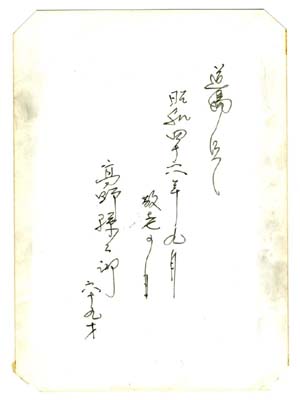 道場にて
昭和四十六年九月
敬老の日
高野孫二郎
六十九才